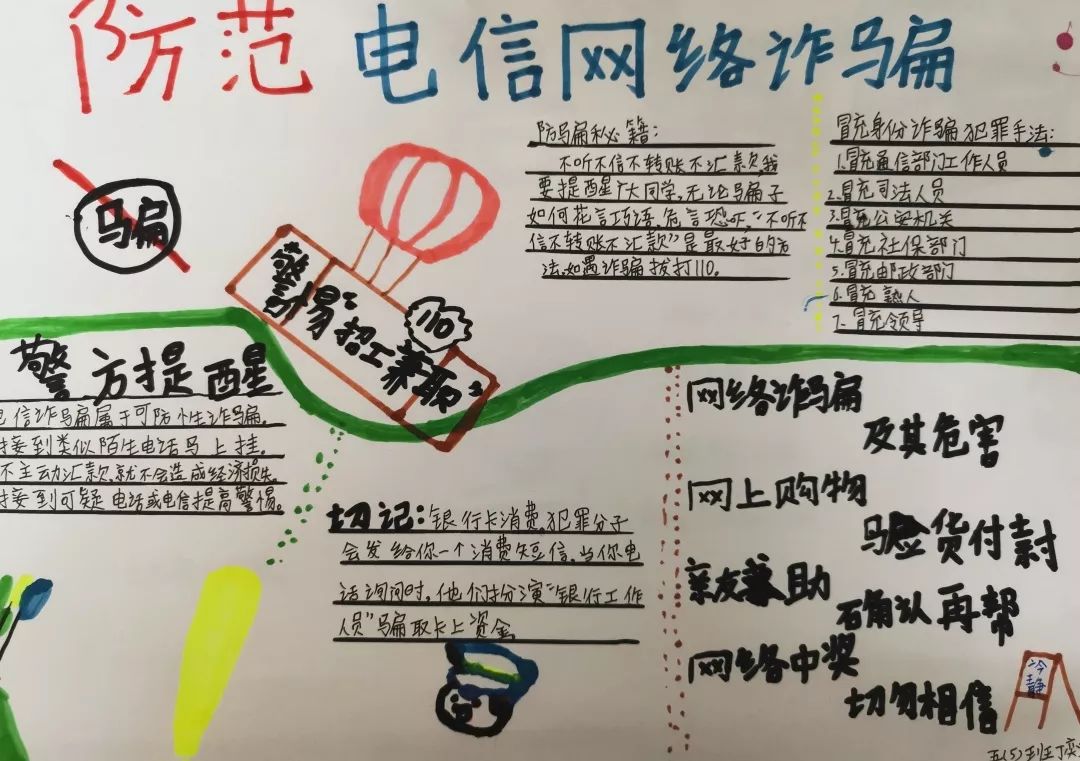 防范 电信网络诈骗
防骗秘籍:
不听不信不转账不汇款,我
要提醒广大同学,无论骗子
如何花言巧语,危言恐吓,"不听不
信不转账不汇款"是最好的方
法,如遇诈骗拨打110。
冒充身份诈骗犯罪手法:
1.冒充通信部门工作人员
2.冒充司法人员
3.冒充公安机关
4.冒充社保部门
5.冒充邮政部门
6.冒充熟人
7.冒充领导
骗
警惕"招工兼职"
110
警方提醒
电信诈骗属于可防性诈骗,
接到类似陌生电话马上挂。
不主动汇款,就不会造成经济损失。
接到可疑电话或电信提高警惕。
切记:银行卡消费,犯罪分子
会发给你一个消费短信,当你电
话询问时,他们扮演"银行工作
人员"骗取卡上资金
网络诈骗
及其危害
网上购物
验货付款
亲友求助
确认再帮
网络中奖
切勿相信
冷静
五(5)班丁奕